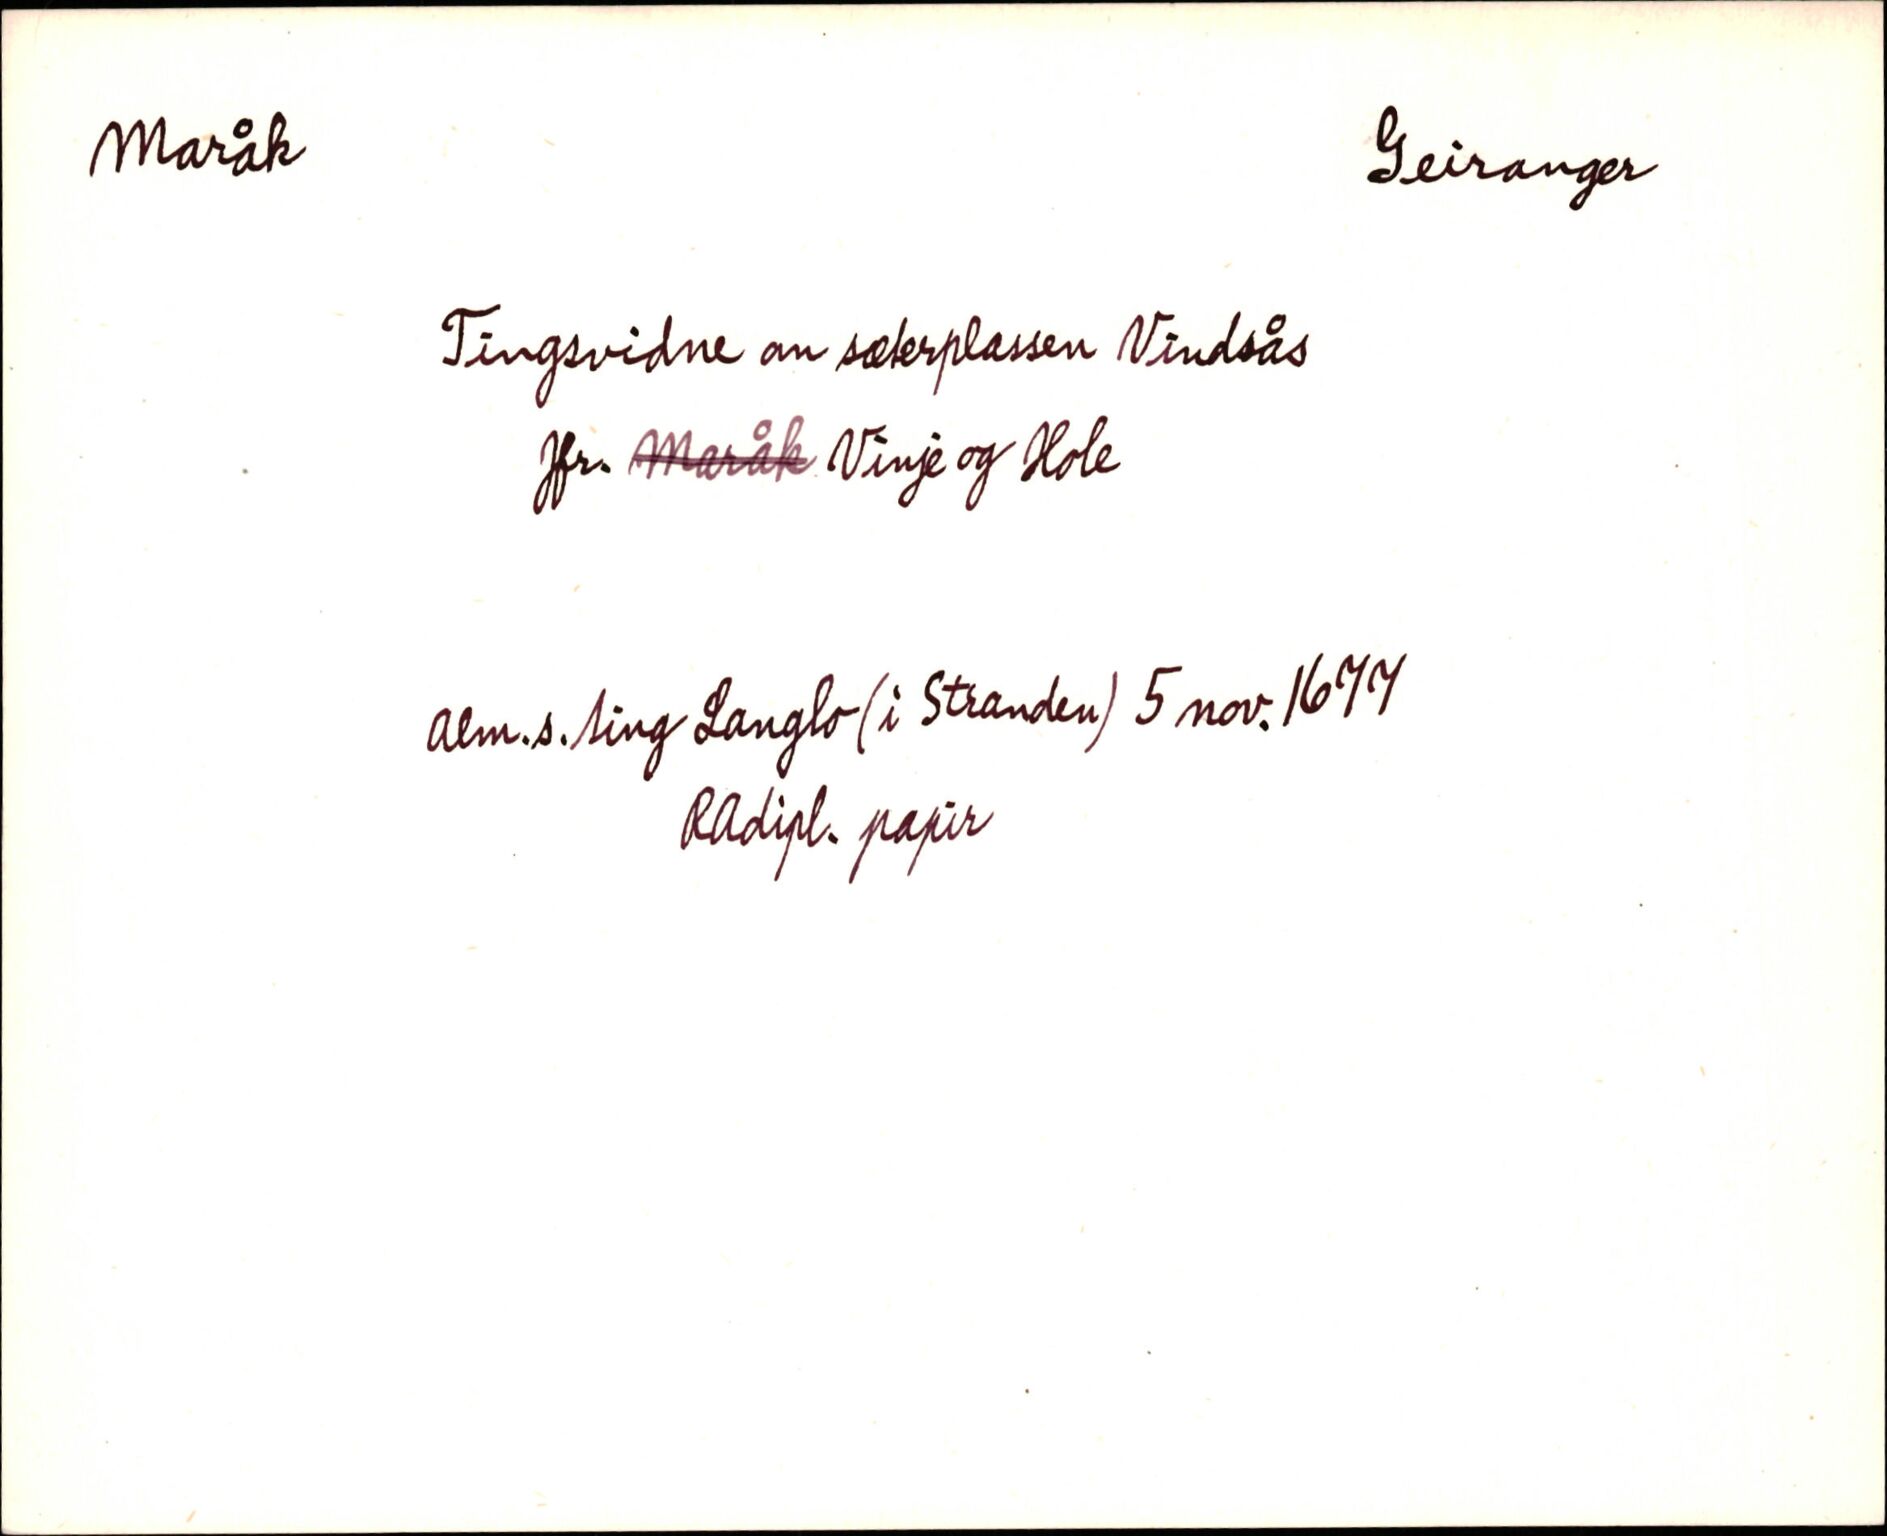 Maråk Geiranger
Tingsvidne an sæterplassen Vindsås
Jfr. Maråk Vinje og Hole
Alm. s. ting Langlo (i Stranden) 5 nov. 1677
RAdipl. papir